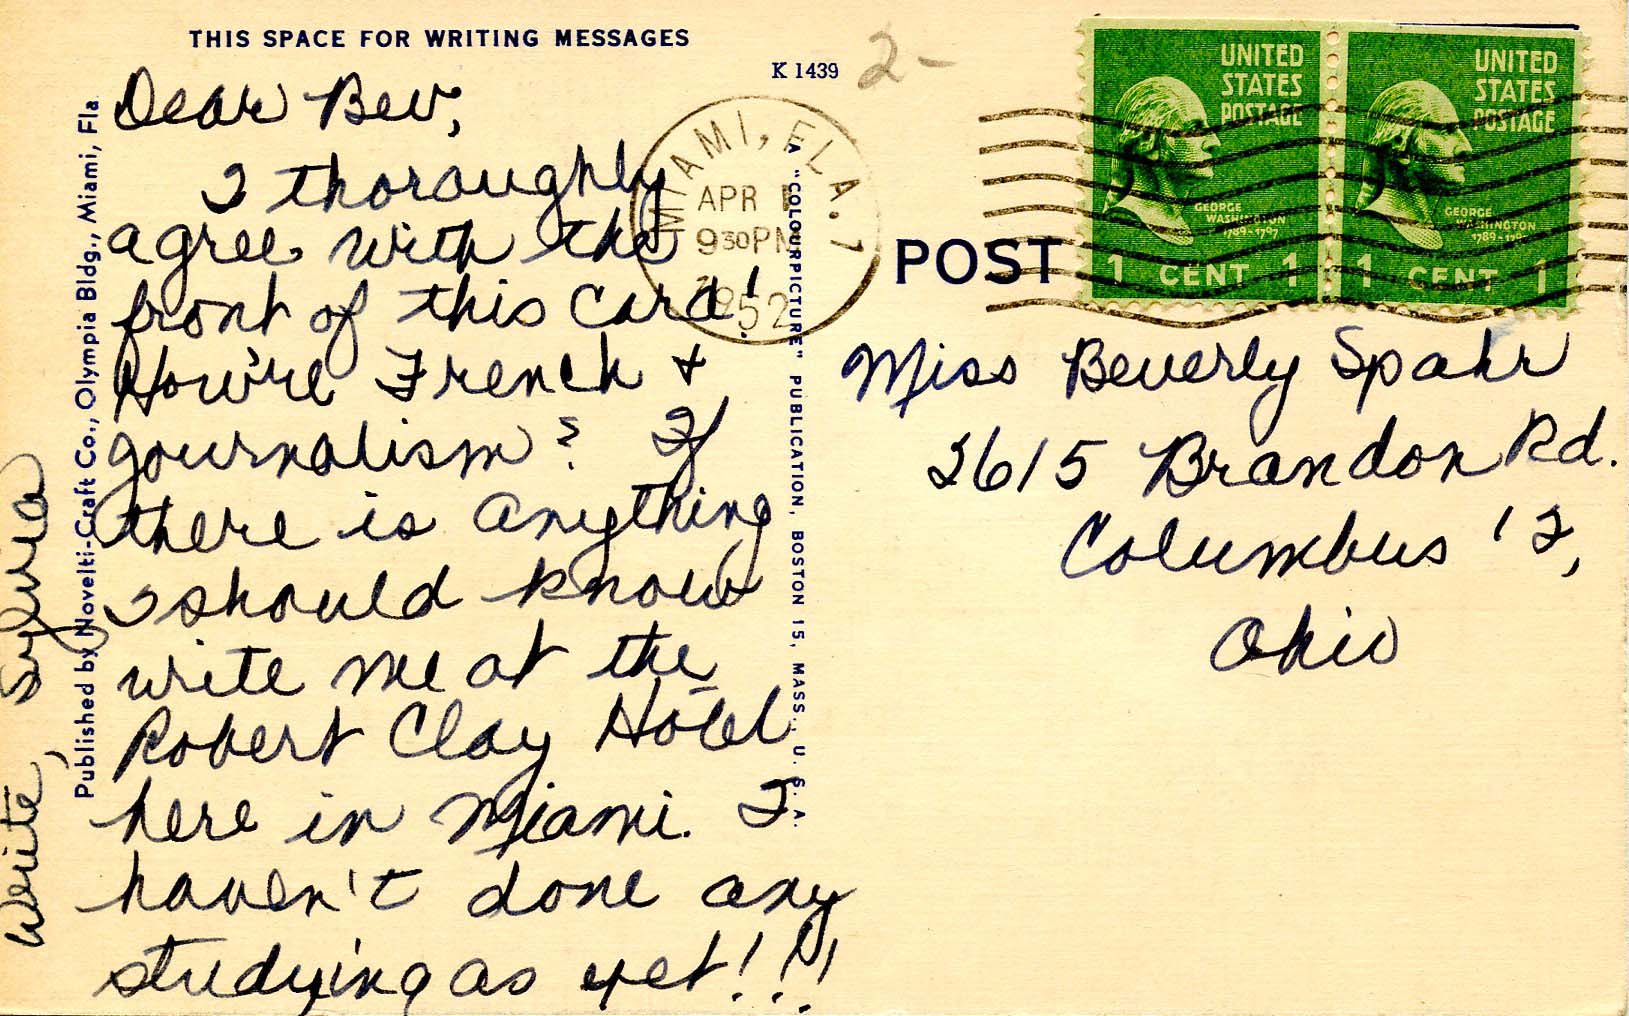 THIS SPACE FOR WRITING MESSAGES
K 1439
2-
Dear Bev,
I thoroughly
agree with the
front of this card!
How're French +
journalism? If
there is anything
I should know
write me at the
Robert Clay Hotel
here in Miami. I
haven't done any
studying as yet!!!
Write, Sylvia
Published by Novelti-Craft Co., Olympia Bldg., Miami, Fla.
A "COLOURPICTURE" PUBLICATION, BOSTON 15, MASS., U. S. A.
MIAMI, FLA. 1
APR
930PM
1952
POST
UNITED
STATES
POSTAGE
GEORGE
WASHINGTON
1789-1797
1 CENT 1
UNITED
STATES
POSTAGE
GEORGE
WASHINGTON
1789-1797
1 CENT 1
Miss Beverly Spahr
2615 Brandon Rd.
Columbus '2,
Ohio